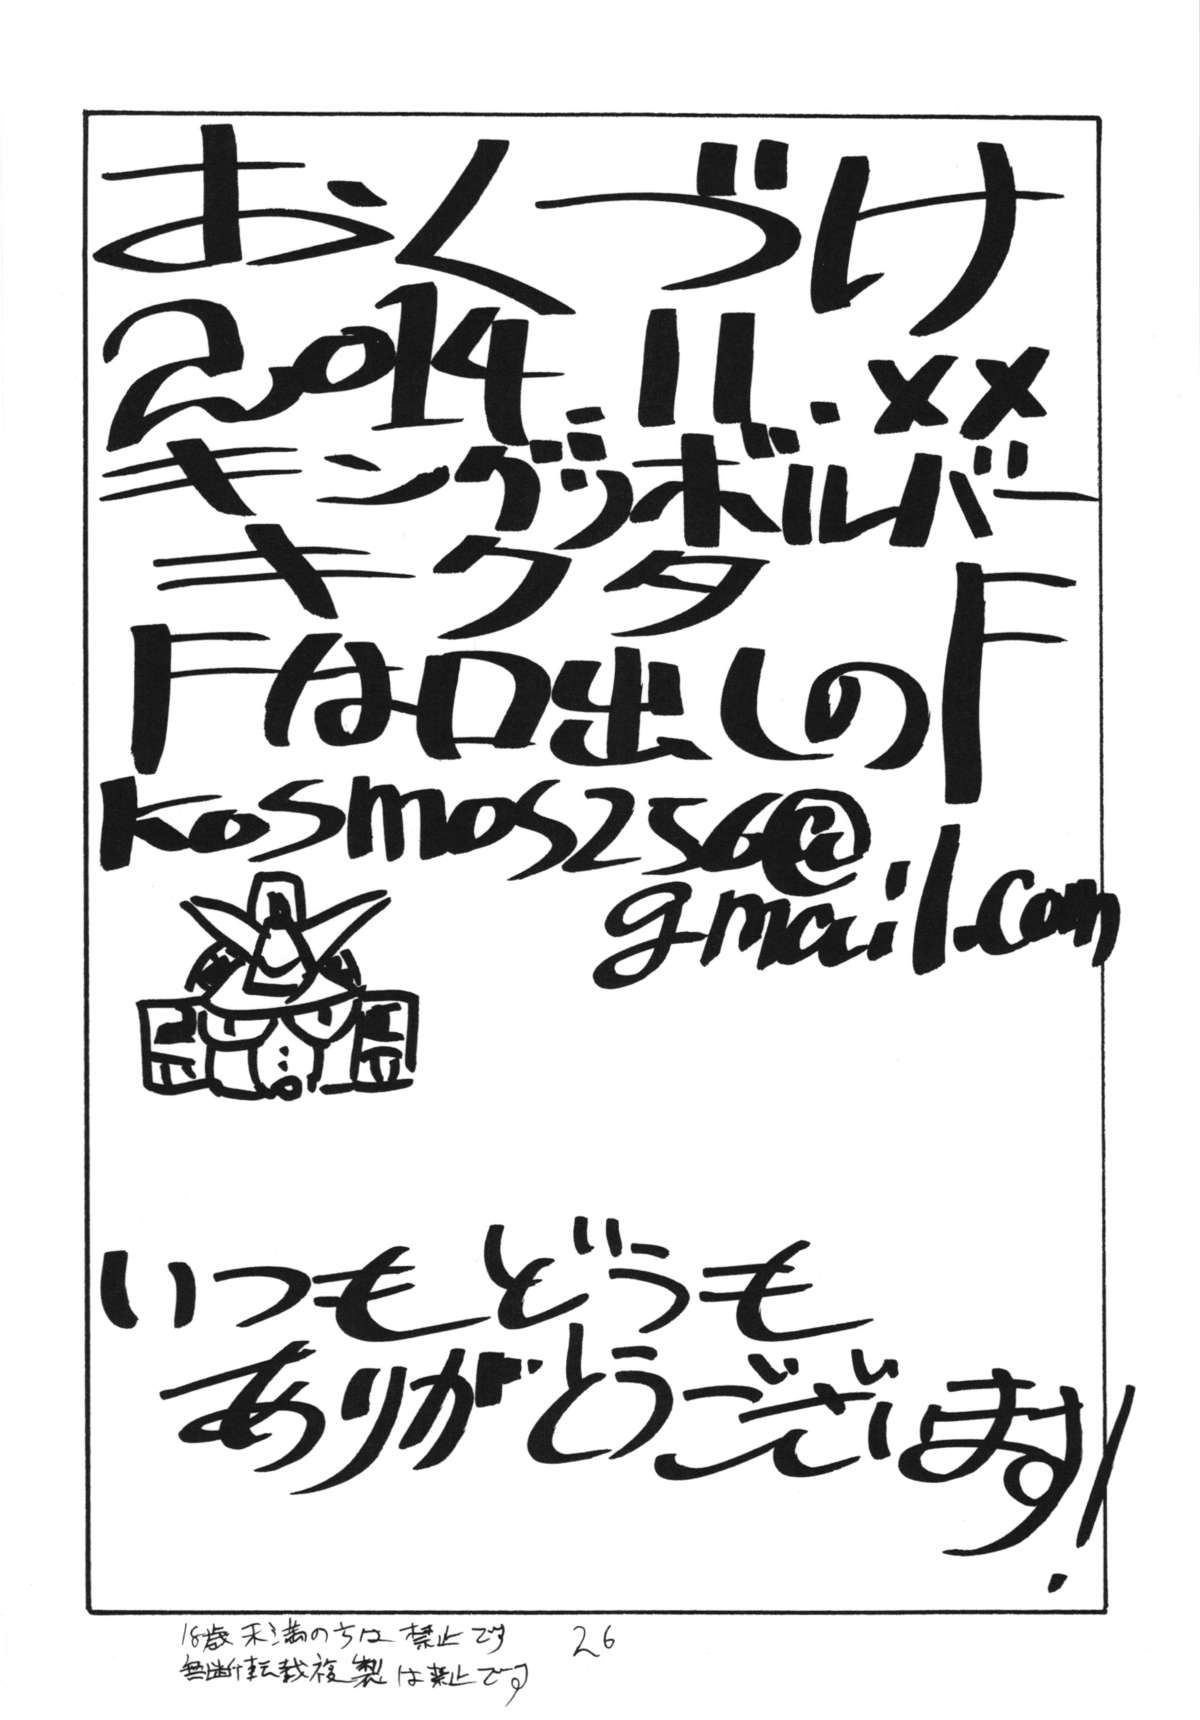 おくづけ
2014.11.xx
キングリボルバー
キクタ
Fは口出しのF
kosmos256@
gmail.com
いつもどうも
ありがとうございます!
18歳未満の方は禁止です
無断転載複製は禁止です
26